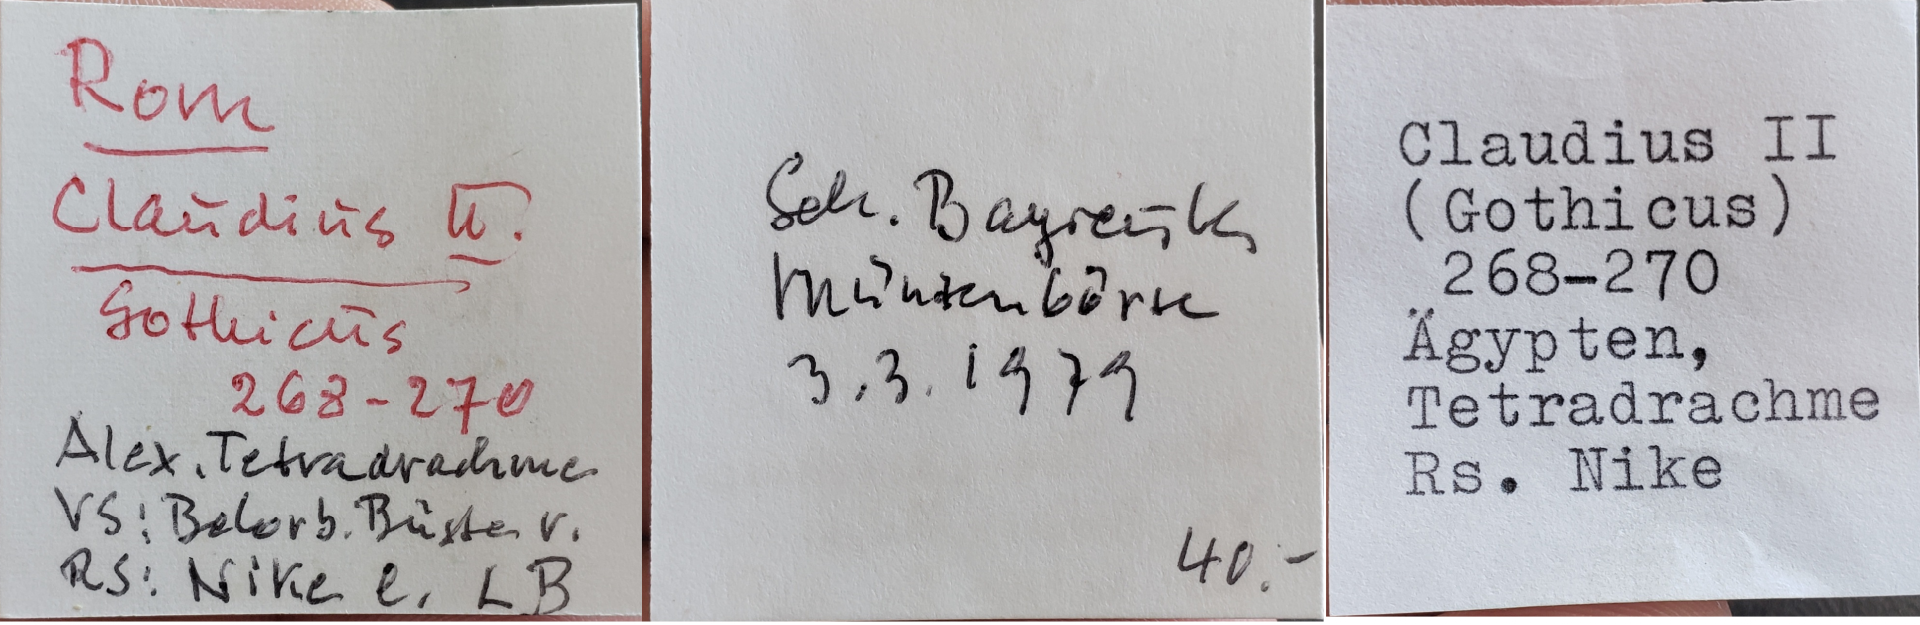 Rom
Claudius II.
Gothicus
268-270
Alex. Tetradrachme
VS: Belorb. Büste r.
RS: Nike l. LB
Bayreuth
Münzenbörse
3.3.1979
40.-
Claudius II
(Gothicus)
268-270
Ägypten,
Tetradrachme
Rs. Nike